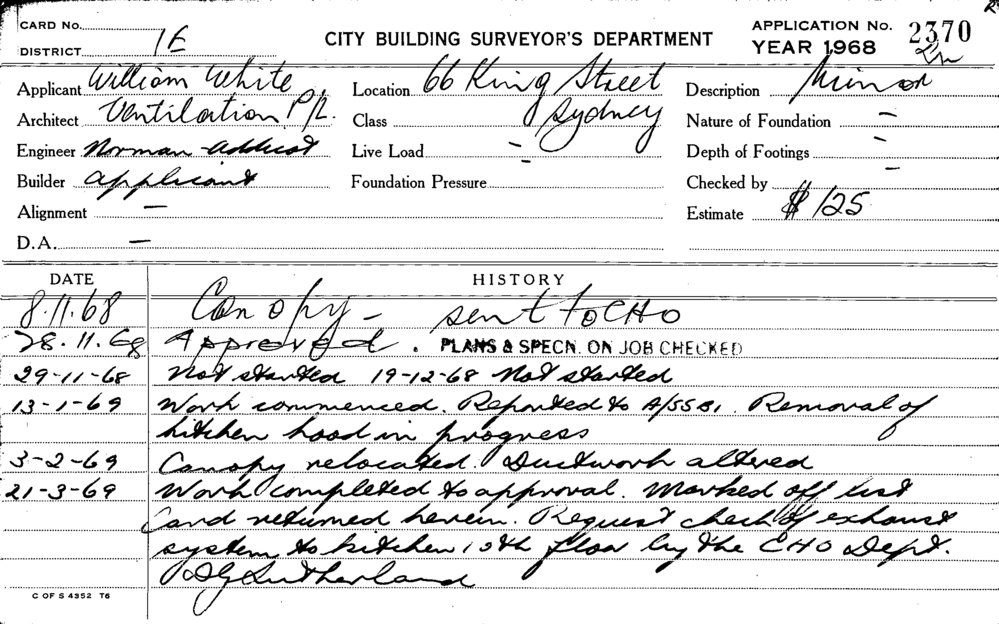 CARD No.
DISTRICT 1E
CITY BUILDING SURVEYOR'S DEPARTMENT
APPLICATION No. 2370
YEAR 1968
Applicant William White
Architect Ventilation P/L.
Engineer Norman Addicot
Builder applicant
Alignment —
D.A. —
Location 66 King Street
Class Sydney
Live Load –
Foundation Pressure –
Description Minor
Nature of Foundation –
Depth of Footings –
Checked by –
Estimate $125
DATE HISTORY
8.11.68 Canopy – sent to CHO
28.11.68 Approved. PLANS & SPECN. ON JOB CHECKED
29-11-68 Not started 19-12-68 Not started
13-1-69 Work commenced. Reported to A/SSBI. Removal of
kitchen hood in progress
3-2-69 Canopy relocated. Ductwork altered
21-3-69 Work completed to approval. Marked off list
Card returned herein. Request check of exhaust
system to kitchen 10th floor by the CHO Dept.
DG Sutherland
C OF S 4352 T6